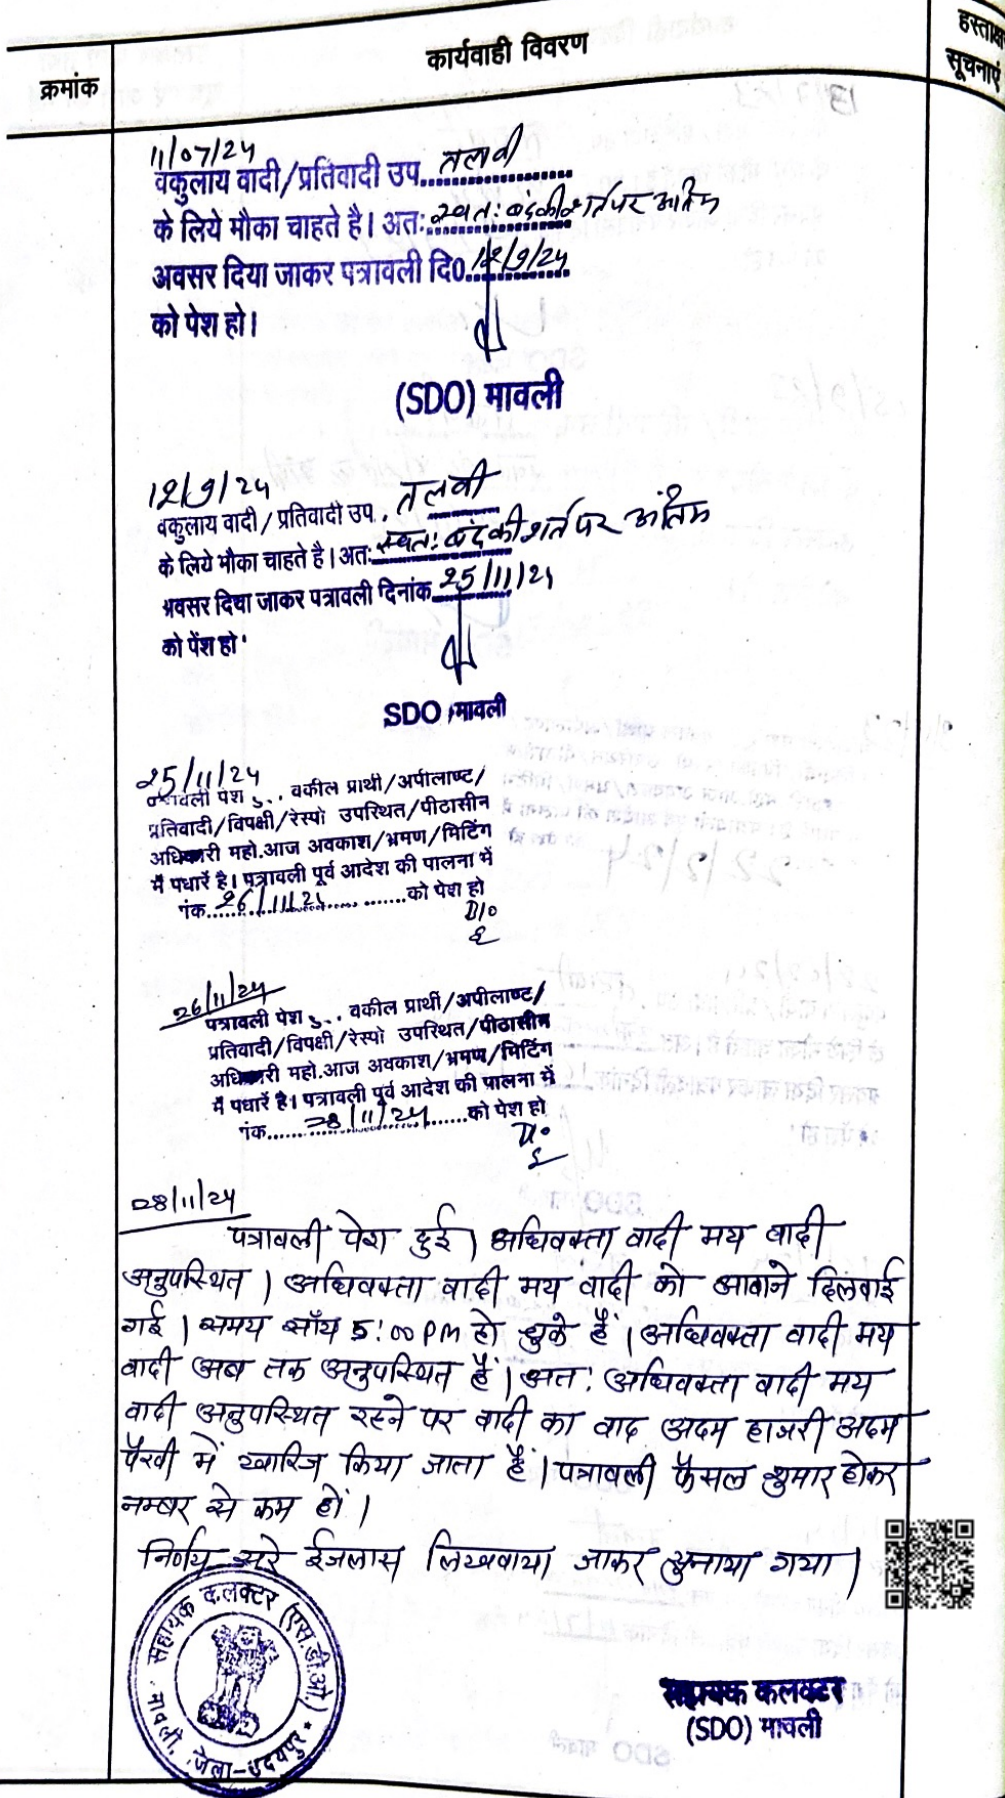 क्रमांक
कार्यवाही विवरण
हस्ताक्ष
सूचनाएं
11/07/24
वकुलाय वादी/प्रतिवादी उप. तलवी
के लिये मौका चाहते है। अतः स्वतः बंद की शर्त पर अंतिम
अवसर दिया जाकर पत्रावली दि0. 12/9/24
को पेश हो।
(SDO) मावली
12/9/24
वकुलाय वादी/प्रतिवादी उप. तलवी
के लिये मौका चाहते है। अतः स्वतः बंद की शर्त पर अंतिम
अवसर दिया जाकर पत्रावली दिनांक 25/11/24
को पेंश हो
SDO मावली
25/11/24
पत्रावली पेश वकील प्रार्थी/अपीलाण्ट/
प्रतिवादी/विपक्षी/रेस्पो उपस्थित/पीठासीन
अधिकारी महो.आज अवकाश/भ्रमण/मिटिंग
में पधारें है। पत्रावली पूर्व आदेश की पालना में
नांक 26/11/24 को पेश हो
26/11/24
पत्रावली पेश वकील प्रार्थी/अपीलाण्ट/
प्रतिवादी/विपक्षी/रेस्पो उपस्थित/पीठासीन
अधिकारी महो.आज अवकाश/भ्रमण/मिटिंग
में पधारें है। पत्रावली पूर्व आदेश की पालना में
नांक 28/11/24 को पेश हो
28/11/24
पत्रावली पेश हुई। अधिवक्ता वादी मय वादी
अनुपस्थित। अधिवक्ता वादी मय वादी को आवाजे दिलवाई
गई। समय सॉंय 5:00 PM हो चुके हैं। अधिवक्ता वादी मय
वादी अब तक अनुपस्थित हैं। अतः अधिवक्ता वादी मय
वादी अनुपस्थित रहने पर वादी का वाद अदम हाजरी अदम
पैरवी में खारिज किया जाता हैं। पत्रावली फैसल शुमार होकर
नम्बर से कम हों।
निर्णय सरे ईजलास लिखवाया जाकर सुनाया गया।
सहायक कलक्टर (एस.डी.ओ.)
मावली, जिला-उदयपुर
सहायक कलक्टर
(SDO) मावली